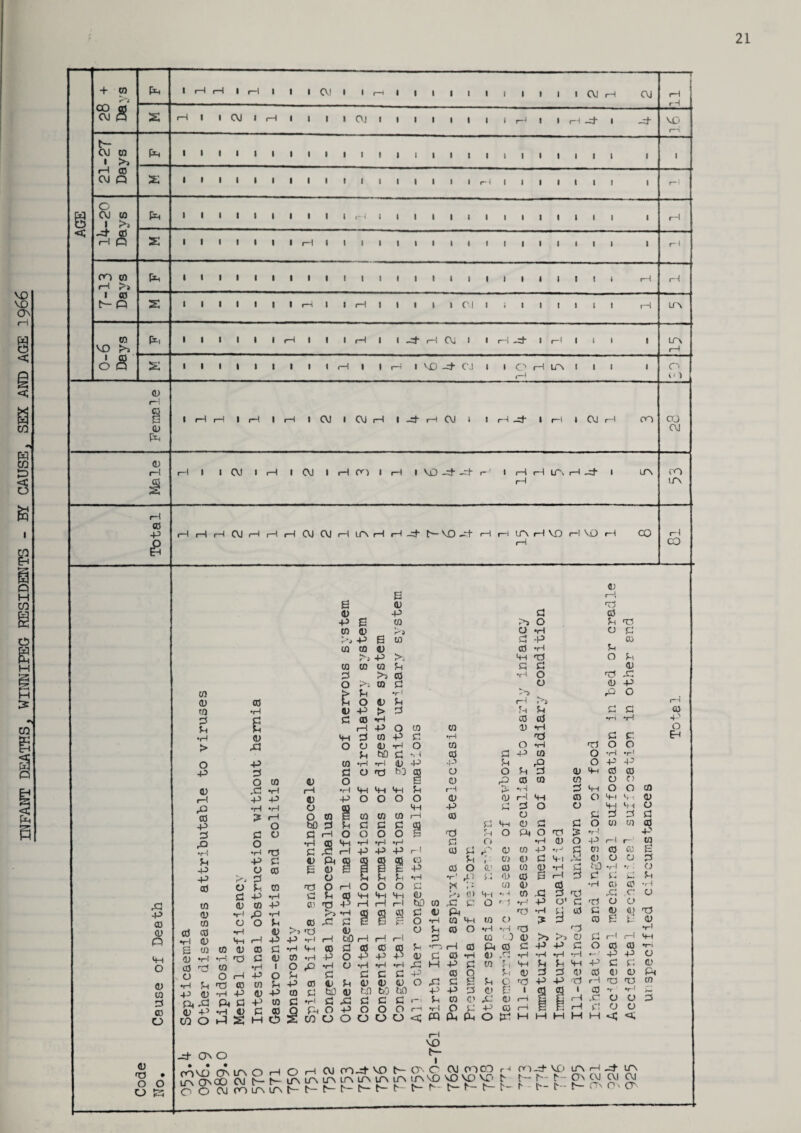 21
INFANT DEATHS, WINNIPEG RESIDENTS - BY CAUSE, SEX AND AGE 1966
Code No. Cause of Death Total Male Female AGE
0-6 Days 7-13 Days 14-20 Days 21-27 Days 28 + Days
M F M F M F M F M F
053.4 Septicaemia 1 1 - - - - - - - - - 1 -
096.9 Other diseases attributable to viruses 1 - 1 - - - - - - - - - 1
289.0 Lipoidosis 1 - 1 - - - - - - - - - 1
325 Mental deficiency 2 2 - - - - - - - - - 2 -
570 Intestinal obstruction without hernia 1 - 1 - - - - - - - - - 1
571 Gastro-enteritis 1 1 - - - - - - - - - 1 -
750 Monstrosity 1 - 1 - 1 - - - - - - - -
751 Spina bifida and meningocele 2 2 - - - 1 - 1 - - - - -
752 Congenital hydrocephalus 2 - 2 - - - - - - - - - 2
753 Other malformations of nervous system 1 1 - 1 - - - - - - - - -
754 Congenital malformations of circulatory system 5 3 2 - 1 1 - - 1 - - 2 -
756 Congenital malformations of digestive system 1 - 1 - - - - - - - - - 1
757 Congenital malformations of genito urinary system 1 1 - 1 - - - - - - - - -
759 4 - 4 - 4 - - - - - - - -
760-761 Birth injury 7 6 1 6 1 - - - - - - - -
762 Postnatal asphyxia and atelectasis 6 4 2 4 2 - - - - - - - -
763 Pneumonia of newborn 4 4 - 2 - 2 - - - - - - -
768 1 1 - - - - - - - 1 - - -
1 - 1 - 1 - - - - - - - -
773 Ill-defined diseases peculiar to early infancy 15 11 4 10 4 - - - - - - 1 -
774 1 1 - 1 - - - - - - - - -
776 Immaturity 6 5 1 5 1 - - - - - - - -
795 Ill defined cause 1 1 - - - - - - - - - 1 -
921 Inhalation and ingestion of food 6 4 2 - - - - - - - - 4 2
924 Accidental mechanical suffocation in bed or cradle 1 - 1 - - - - - - - - - 1
925 Accidental mechanical suffocation in other and unspecified circumstances 8 5 3 - - 1 1 - - - - 4 2
Total 81 53 28 30 15 5 1 1 1 1 - 16 11